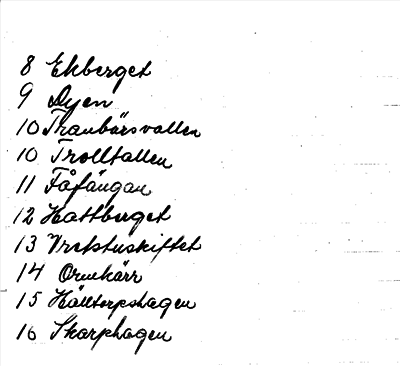 8 Ekberget
9 Dyen
10 Tranbärsvallen
10 Trolltallen
11 Fåfängan
12 Kattberget
13 Vretstuskiftet
14 Ormkärr
15 Hälltorpshagen
16 Skarphagen